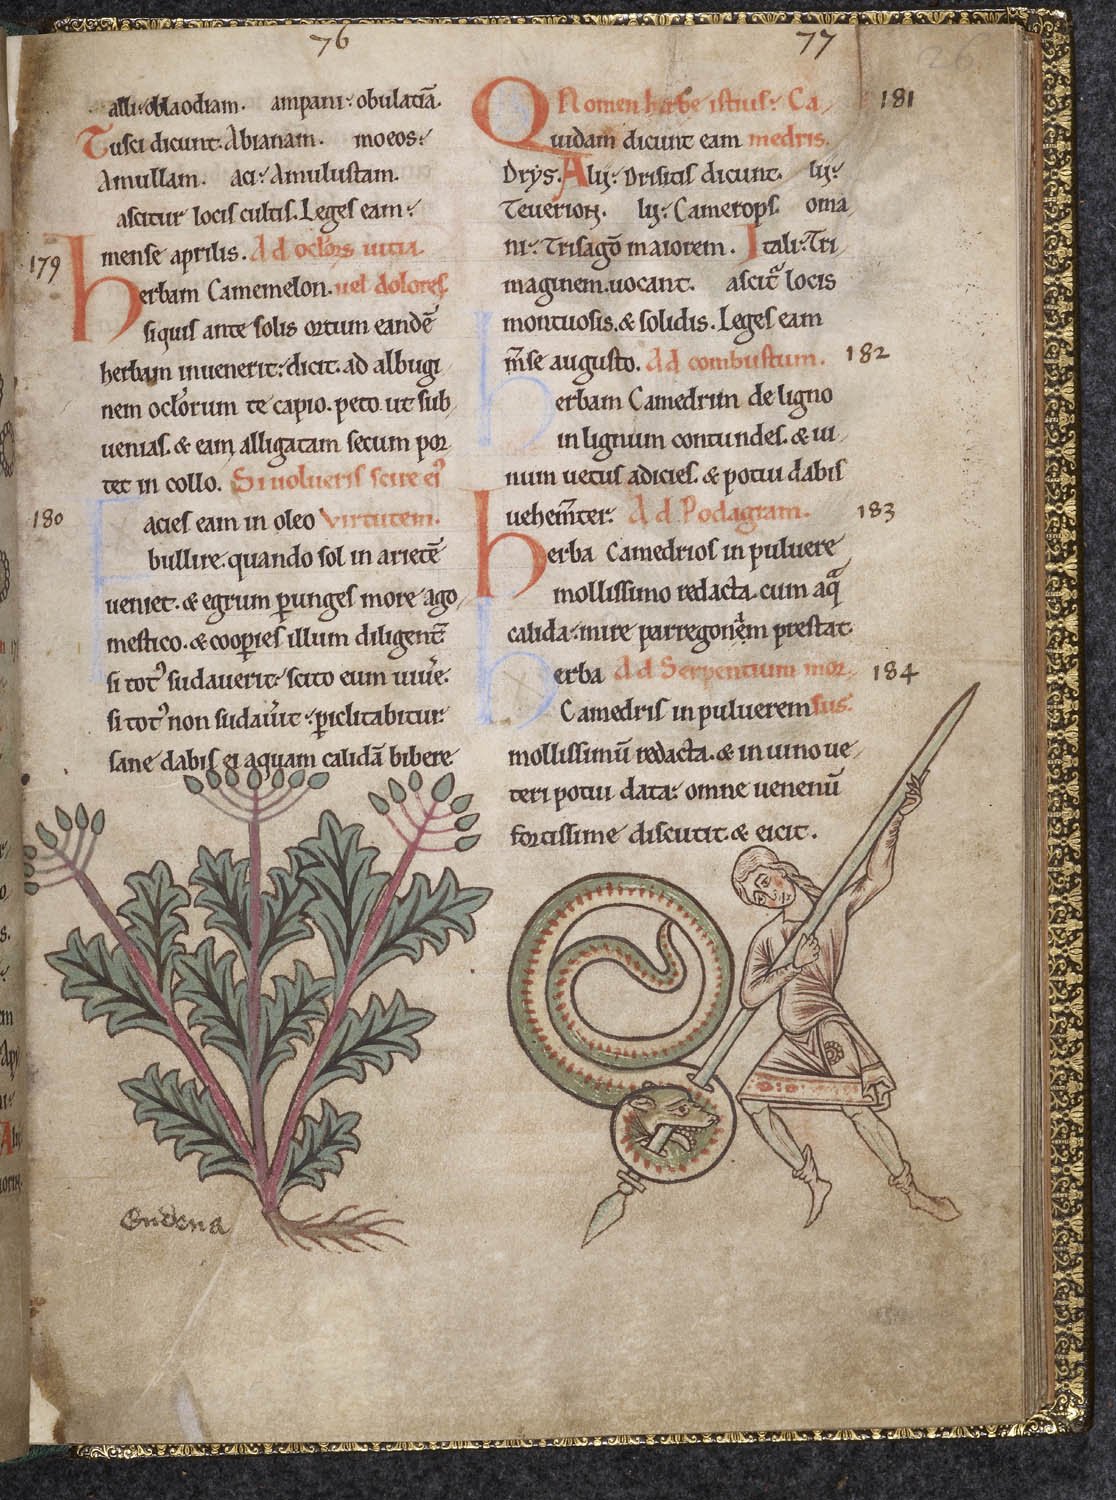 76
alli: oblaodiam. ampani: obulaciā.
Tusci dicunt. Abianam. moeos:
Amullam. aci: Amulustam.
ascitur locis cultis. Leges eam:
mense aprilis. Ad oclōrs uitia
179
herbam Camemelon. uel dolores.
siquis ante solis ortum eandē
herbam inuenerit: dicit. ad albugi
nem oclōrum te capio. peto. ut sub
uenias. & eam alligatam secum por
tet in collo. Si uolueris scire ei'
180
Facies eam in oleo virtutem.
bullire. quando sol in arietē
ueniet. & egrum punges more ago
mestico. & coopies illum diligent̄
si tot' sudauerit: scito eum uiu'e.
si tot' non sudau'it: piclitabitur:
sane dabis ei aquam calidā bibere
Endena
77
26
Nomen herbe istius: Ca
181
Quidam dicunt eam medris.
Drys. Alii: Drisitis dicunt. lii:
Teuerion. lii: Camerops. oma
ni: Trisagō maiorem. Itali: Tri
maginem. uocant. ascit' locis
montuosis. & solidis. Leges eam
m̄se augusto. Ad combustum.
182
herbam Camedrim de ligno
in lignum contundes. & ui
num uetus adicies. & potui dabis
uehem̄ter. Ad Podagram.
183
herba Camedrios in puluere
mollissimo redacta. cum aq̄
calida: mire parregoriēm prestat
herba Ad Serpentium mor
184
Camedris in puluerem sus.
mollissimū redacta. & in uino ue
teri potui data: omne uenenū
fortissime discutit & eicit.